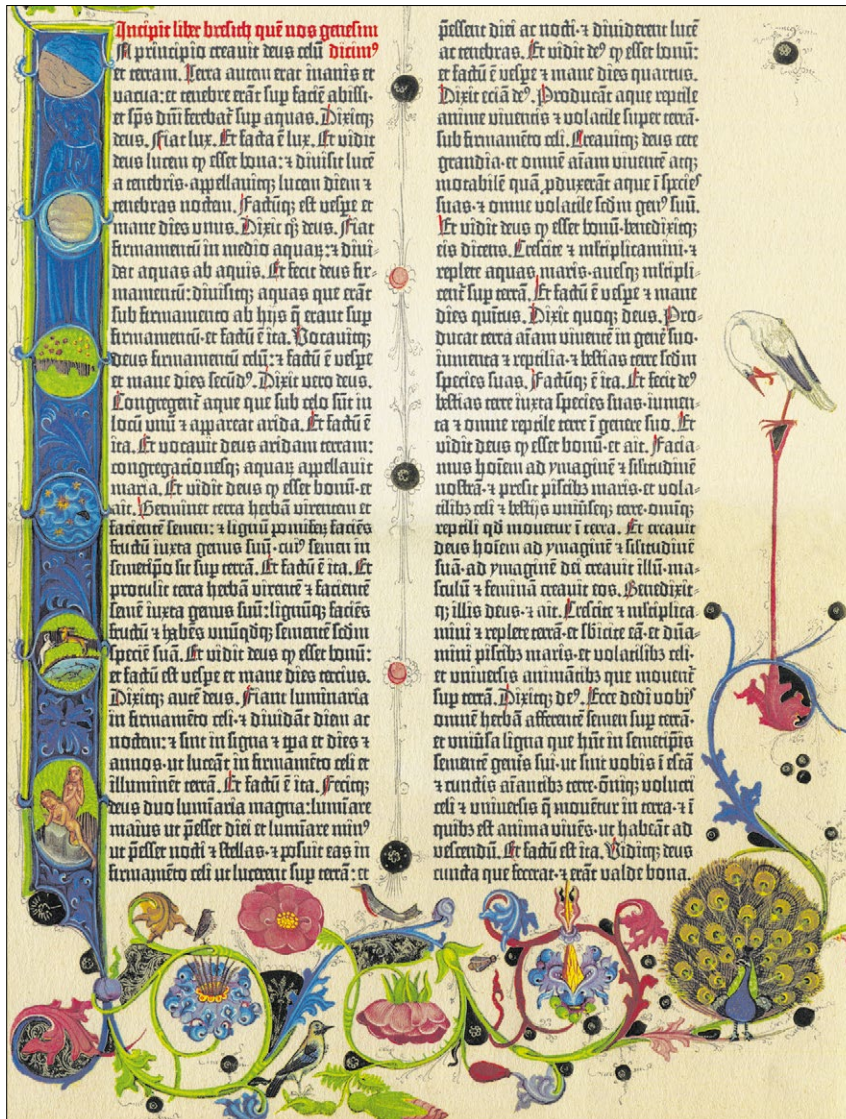 Incipit liber bresith quē nos genesim
N principio creauit deus celū dicimꝰ
et terram. Terra autem erat inanis et
vacua: et tenebre erāt sup faciē abissi·
et sp̄s dn̄i ferebat̄ sup aquas. Dixitqꝫ
deus. Fiat lux. Et facta ē lux. Et vidit
deus lucem ꝙ esset bona: ⁊ diuisit lucē
a tenebris· appellauitqꝫ lucem diem ⁊
tenebras noctem. Factūqꝫ est vespe et
mane dies vnus. Dixit qꝫ deus. Fiat
firmamentū in medio aquaꝝ: ⁊ diui-
dat aquas ab aquis. Et fecit deus fir-
mamentū: diuisitqꝫ aquas que erāt
sub firmamento ab hijs q̄ erant sup
firmamentū· et factū ē ita. Vocauitqꝫ
deus firmamentū celū: ⁊ factū ē vespe
et mane dies secūdꝰ. Dixit vero deus.
Congregent̄ aque que sub celo sūt in
locū vnū ⁊ appareat arida. Et factū ē
ita. Et vocauit deus aridam terram:
congregacionesqꝫ aquaꝝ appellauit
maria. Et vidit deus ꝙ esset bonū· et
ait. Germinet terra herbā virentem et
facientē semen: ⁊ lignū pomifeꝝ faciēs
fructū iuxta genus suū· cuiꝰ semen in
semetip̄o sit sup terrā. Et factū ē ita. Et
protulit terra herbā virentē ⁊ facientē
semē iuxta genus suū: lignūqꝫ faciēs
fructū ⁊ habēs vnūqdqꝫ sementē scdm
speciē suā. Et vidit deus ꝙ esset bonū:
et factū est vespe et mane dies tercius.
Dixitqꝫ autē deus. Fiant luminaria
in firmamēto celi· ⁊ diuidāt diem ac
noctem: ⁊ sint in signa ⁊ tp̄a et dies ⁊
annos· ut luceāt in firmamēto celi et
illuminēt terrā. Et factū ē ita. Fecitqꝫ
deus duo luminaria magna: lumiare
maius ut p̄esset diei et lumiare minꝰ
ut p̄esset nocti ⁊ stellas· ⁊ posuit eas in
firmamēto celi ut lucerent sup terrā: et
p̄essent diei ac nocti· ⁊ diuiderent lucē
ac tenebras. Et vidit deꝰ ꝙ esset bonū:
et factū ē vespe ⁊ mane dies quartus.
Dixit eciā deꝰ. Producāt aque reptile
anime viuentis ⁊ volatile super terrā·
sub firmamēto celi. Creauitqꝫ deus cete
grandia· et omnē aīam viuentē atqꝫ
motabilē quā ꝓduxerāt aque ī species
suas· ⁊ omne volatile scdm genꝰ suū.
Et vidit deus ꝙ esset bonū· benedixitqꝫ
eis dicens. Crescite ⁊ mltiplicamini· ⁊
replete aquas maris· auesqꝫ mltipli-
cent̄ sup terrā. Et factū ē vespe ⁊ mane
dies quītus. Dixit quoqꝫ deus. Pro-
ducat terra aīam viuentē in genē suo·
iumenta ⁊ reptilia· ⁊ bestias terre scdm
species suas. Factūqꝫ ē ita. Et fecit deꝰ
bestias terre iuxta species suas· iumen-
ta ⁊ omne reptile terre ī genere suo. Et
vidit deus ꝙ esset bonū· et ait. Facia-
mus hoīem ad ymaginē ⁊ silitudinē
nostrā· ⁊ presit piscibꝫ maris· et vola-
tilibꝫ celi ⁊ bestijs vniūseqꝫ terre· omīqꝫ
reptili qd mouetur ī terra. Et creauit
deus hoīem ad ymaginē ⁊ silitudinē
suā· ad ymaginē dei creauit illū· ma-
sculū ⁊ feminā creauit eos. Benedixit-
qꝫ illis deus· ⁊ ait. Crescite ⁊ mltiplica-
mini ⁊ replete terrā· et sbicite eā· et dn̄a-
mini piscibꝫ maris· et volatilibꝫ celi·
et vniuersis animātibꝫ que mouent̄
sup terrā. Dixitqꝫ deꝰ. Ecce dedi vobiꝰ
omnē herbā afferentē semen sup terrā·
et vniūsa ligna que hn̄t in semetip̄is
sementē gen̄is sui· ut sint vobis ī escā
⁊ cunctis aīantibꝫ terre· om̄iqꝫ volucri
celi ⁊ vniuersis q̄ mouētur in terra· ⁊ ī
quibꝫ est anima viuēs· ut habeāt ad
vescendū. Et factū est ita. Viditqꝫ deus
cuncta que fecerat· ⁊ erāt valde bona.